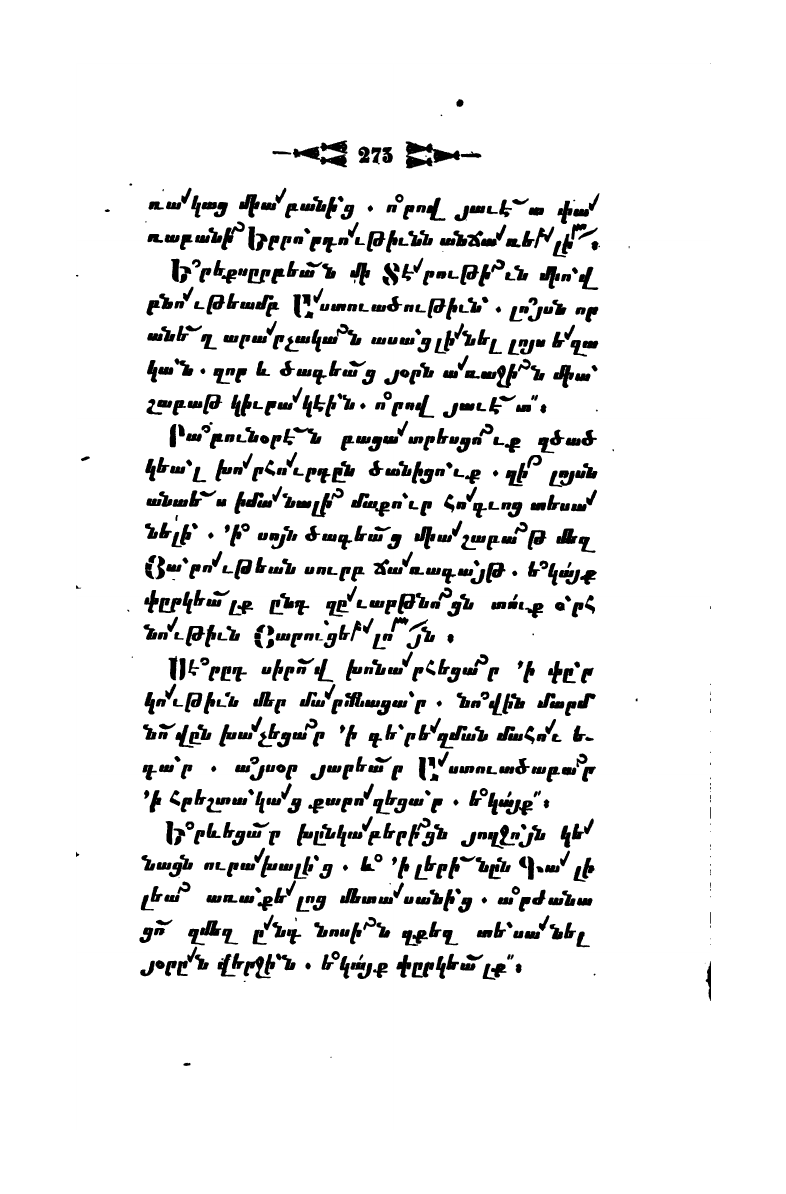 273
ռակաց միաբանից . որով յաւէտ փա
ռաբանի Երրորդութիւնն անճառելի ։
Երեքսըրբեան մի Տէրութիւն միով
բնութեամբ Աստուածութիւն . լոյսն որ
անեղ արարչական ասաց լինել լոյս եզա
կան . զոր և ծագեաց յօրն առաջին միա
շաբաթ կիւրակէին . որով յաւէտ ։
Բաբունօրէն բացատրեսցուք զծած
կեալ խորհուրդըն ծանիցուք . զի լոյսն
անաես իմանալի մաքուր հոգւոց տեսա
նելի . ՚ի սոյն ծագեաց միաշաբաթ մեզ
Յարութեան սուրբ ճառագայթ . եկայք
փըրկեալք ընդ զըւարթնոցն տուք օրհ
նութիւն Յարուցելոյն ։
Տէրըդ սիրով խոնարհեցար ՚ի փըր
կութիւն մեր մարմնացար . նովին մարմ
նովըն խաչեցար ՚ի գերեզման մահու ե-
դար . այսօր յարեար Աստուածաբար
՚ի հրեշտակաց քարոզեցար . եկայք ։
Երևեցար խընկաբերիցն յողջոյն կե
նացն ուրախալից . և ՚ի լերինըն Գալի
լեա առաքելոց մետասանից . արժանա
ցո զմեզ ընդ նոսին զքեզ տեսանել
յօրըն վերջին . եկայք փըրկեալք ։